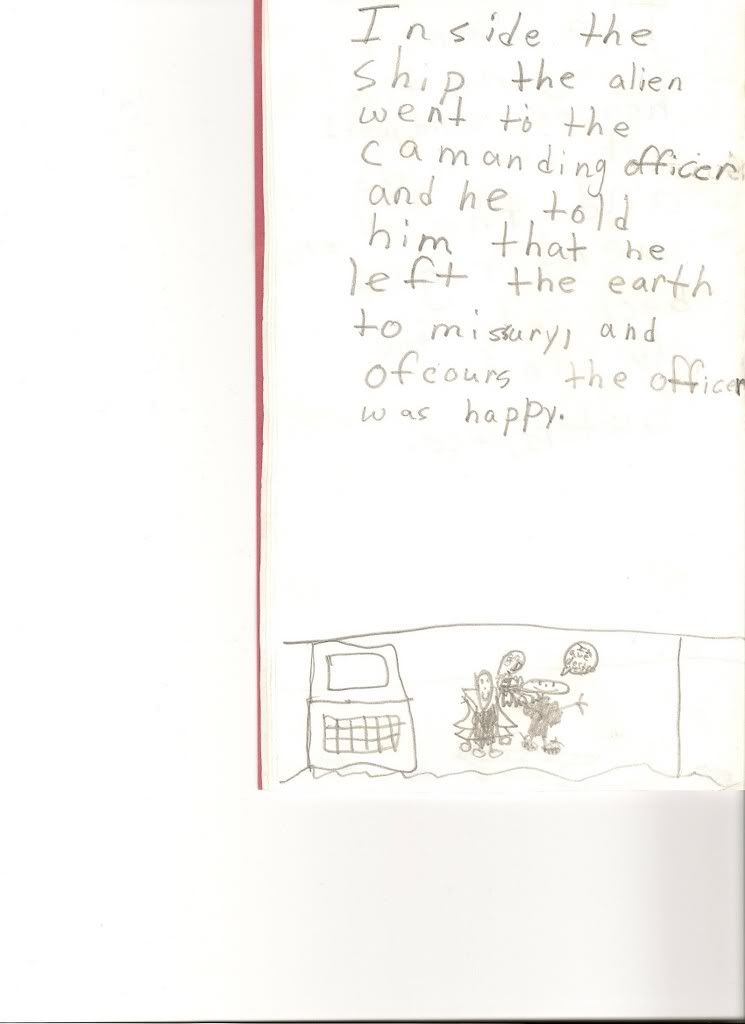 Inside the
ship the alien
went to the
camanding officer
and he told
him that he
left the earth
to missury, and
ofcours the officer
was happy.